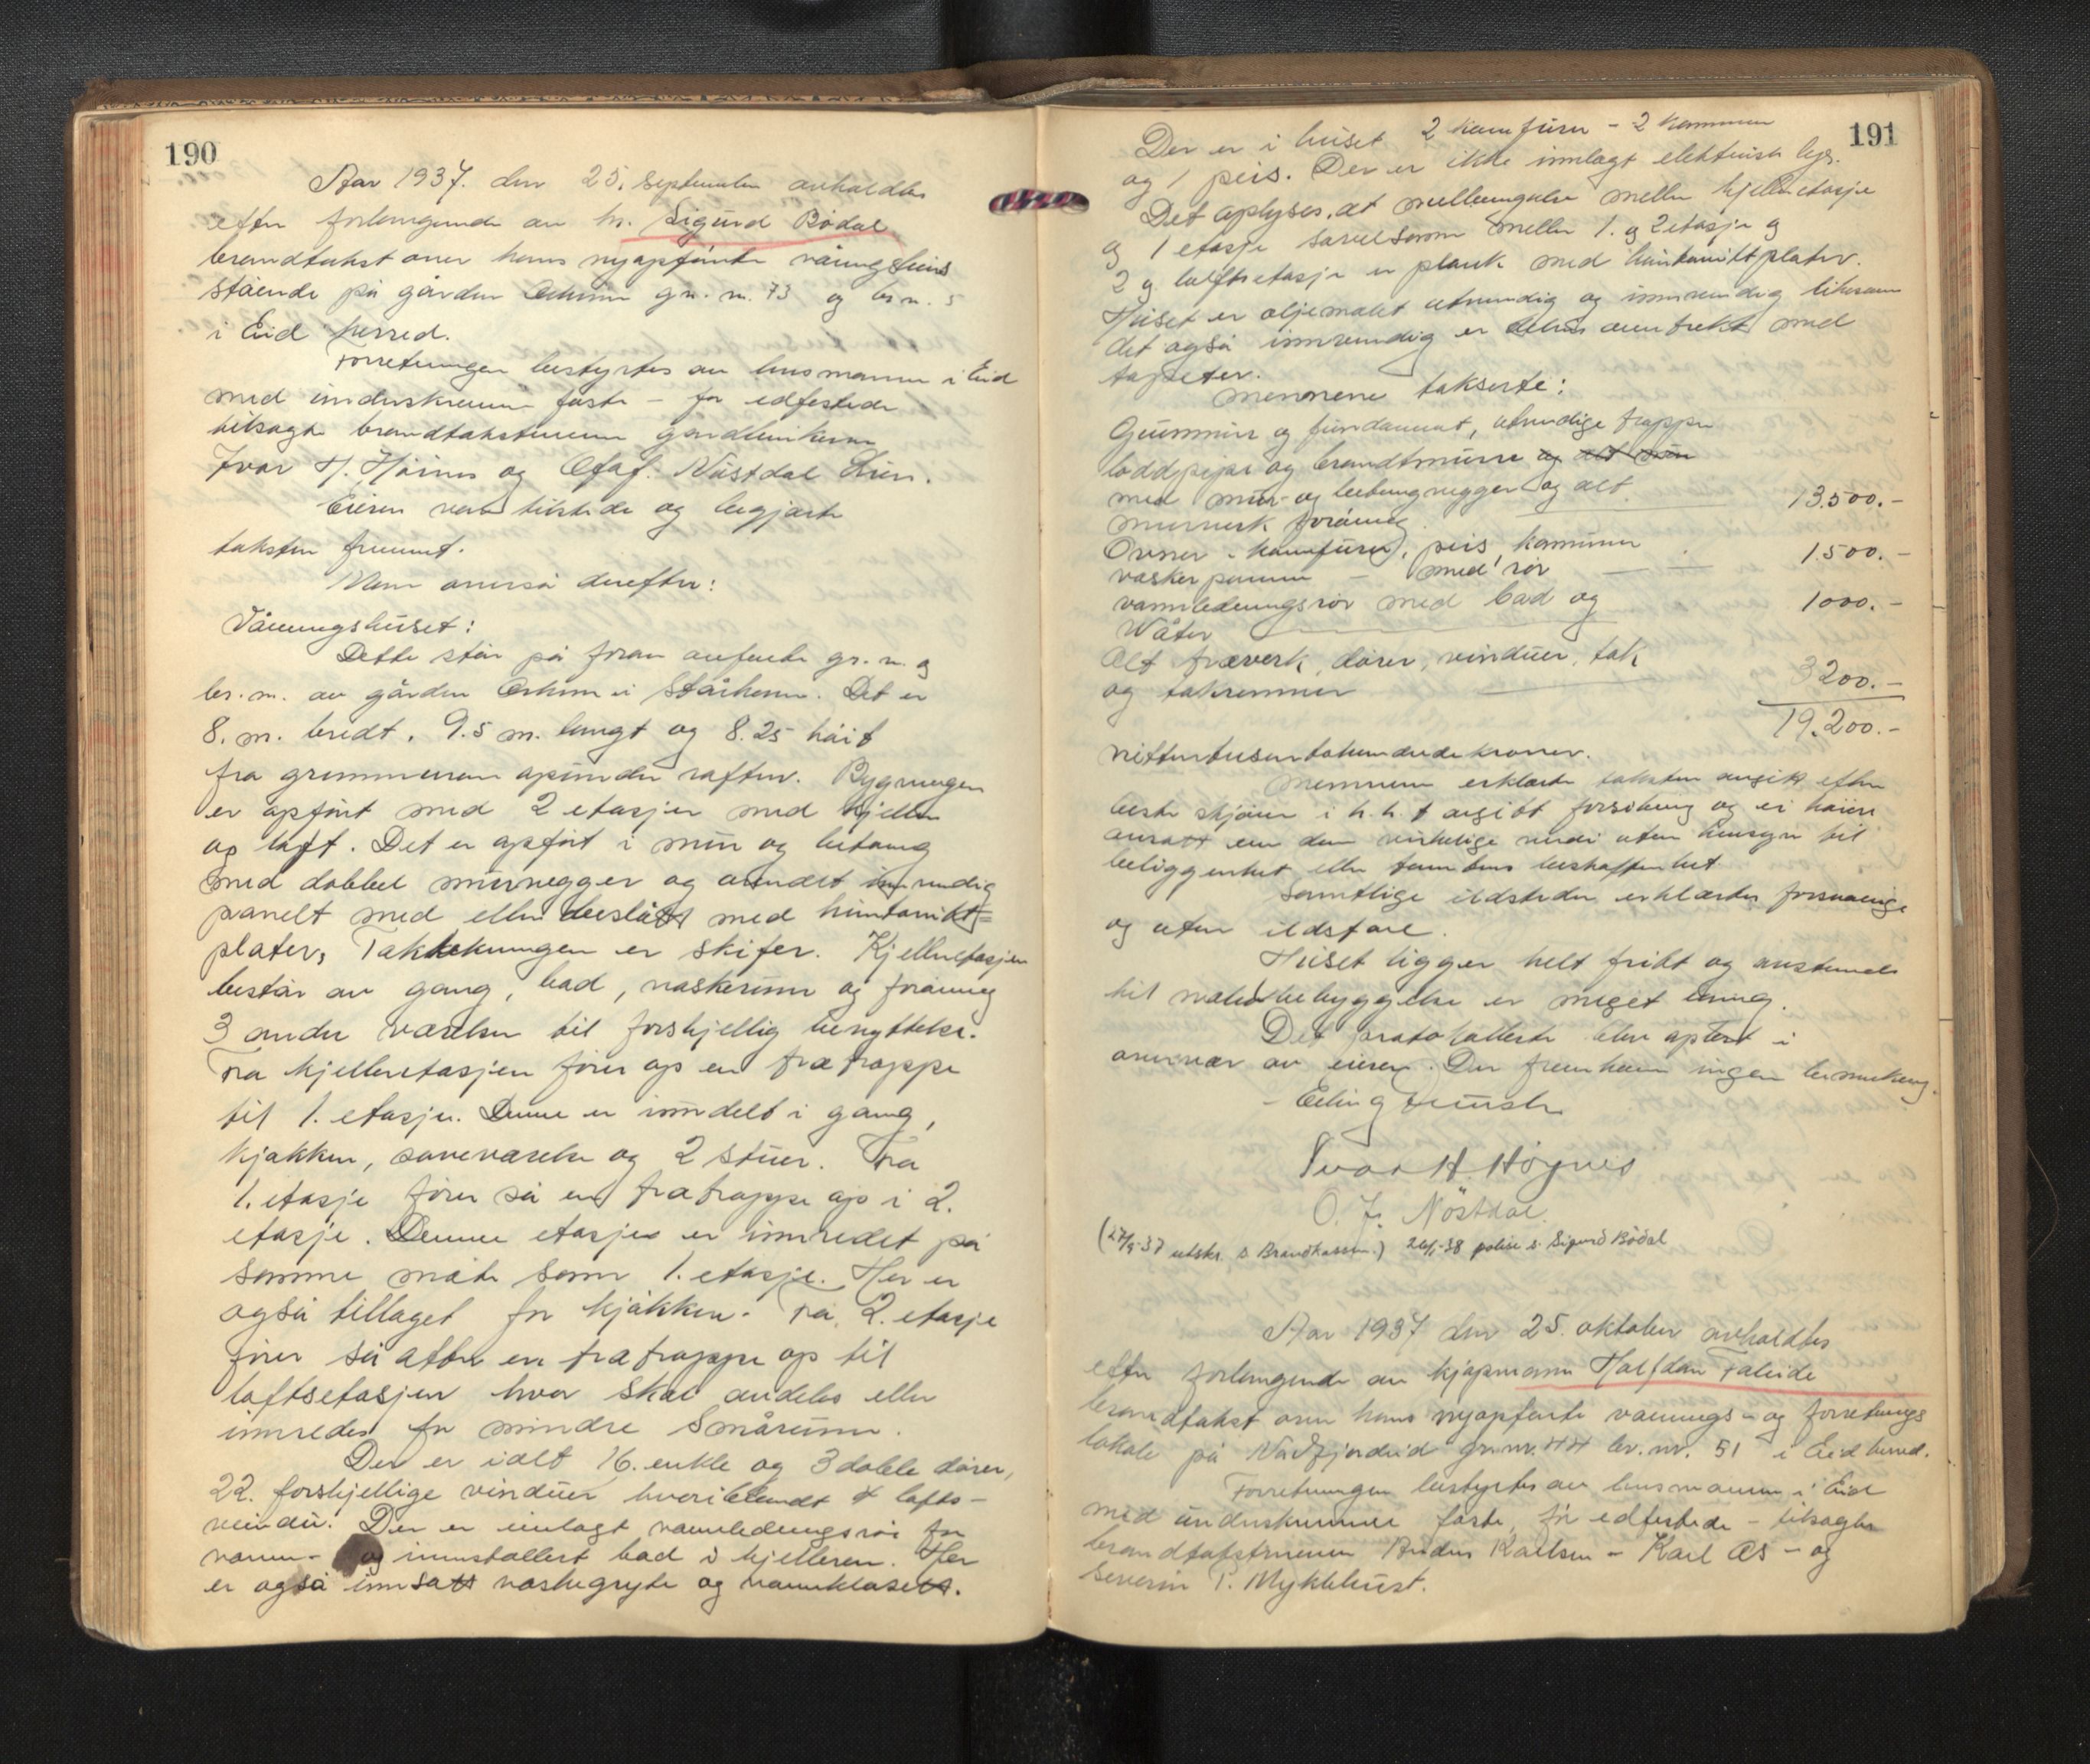 190
Aar 1937. den 25. september avholdtes
efter forlangende av hr. Sigurd Bødal
brandtakst over hans nyopførte våningshus
stående på gården gr. n. 73 og br. n. 5
i Eid herred.
Forretningen bestyrtes av lensmannen i Eid
med underskrevne faste - for edfestede
tilsagte brandtakstmenn gardbrukerne
Ivar H. og Olaf. Nøstdal
Eieren var tilstede og begjærte
taksten fremmet.
Man anerså derefter:
Våningshuset:
Dette står på foran anførte gr. n. og
br. n. av gården i Stårheim. Det er
8. m. bredt. 9.5 m. langt og 8.25 høit
fra grunnmuren opunder raften. Bygningen
er opført med 2 etasjer med kjeller
og loft. Det er opført i mur og betong
med dobbel murvegger og alt innvendig
panelt med eller beslått med huntonitt=
plater. Taktekningen er skifer. Kjelleretasjen
består av gang, bad, vaskerum og foruten
3 andre værelser til forskjellig benyttelse.
Fra kjelleretasjen fører op en trætrappe
til 1. etasje. Denne er inndelt i gang,
kjøkken, soveværelse og 2 stuer. Fra
1. etasje fører så en trætrappe op i 2.
etasje. Denne etasjes er innredet på
samme måte som 1. etasje. Her er
også tillaget for kjøkken. Fra 2. etasje
fører så atter en trætrappe op til
loftsetasjen hvor skal andeles eller
innredes for mindre smårum.
Der er ialt 16. enkle og 3 doble dører,
22. forskjellige vinduer hvoriblandt 4 lofts-
vindu. Der er innlagt vannledningsrør for
vann- og innstallert bad i kjelleren. Her
er også innsatt vaskegryte og vannklosett.
191
Der er i huset 2 komfurer - 2 kaminer
og 1 peis. Der er ikke innlagt elektrisk lys.
Det oplyses, at mellem kjelleretasje
og 1 etasje såvelsom mellem 1. og 2 etasje og
2 og loftsetasje er plank med huntonittplater.
Huset er oljemalt utvendig og innvendig likesom
det også innvendig er delvis overtrekt med
tapeter.
Mennene takserte:
Grunnmur og fundament, utvendige trapper
loddpipe og brandmurer og alt mur
med mur- og betongvegger og alt
murverk forøvrig 13.500.-
Ovner - komfurer, peis, kaminer
vaskepanne - med rør 1.500.-
vannledningsrør med bad og
Wåter 1000.-
Alt træverk, dører, vinduer, tak
og takrenner 3200.-
19.200.-
nittentusentohundrede kroner.
Mennene erklærte taksten avgitt efter
beste skjønn i h. h. t avgitt forsikring og ei høiere
ansatt enn den virkelige verdi uten hensyn til
beliggenhet eller tomtens beskaffenhet
Samtlige ildsteder erklærtes forsvarlige
og uten ildsfare.
Huset ligger helt fritt og avstanden
til nabobebyggelse er meget lang.
Det protokollerte blev oplest i
overvær av eieren. Der fremkom ingen bemerkning.
Ivar H. Høynes
O. J. Nøstdal.
(27/9-37 utskr. s. Brandkassen.) 26/1-38 polise s. Sigurd Bödal
Aar 1937 den 25. oktober avholdtes
efter forlangende av kjøpmann Halfdan Faleide
brandtakst over hans nyopførte vånings- og forretnings
lokale på Nordfjordeid gr. nr. 44 br. nr. 51 i Eid herred.
Forretningen bestyrtes av lensmannen i Eid
med underskrevne faste, for edfestede - tilsagte
brandtakstmenn Karlsen - Karl Ås - og
Severin P. Myklebust.